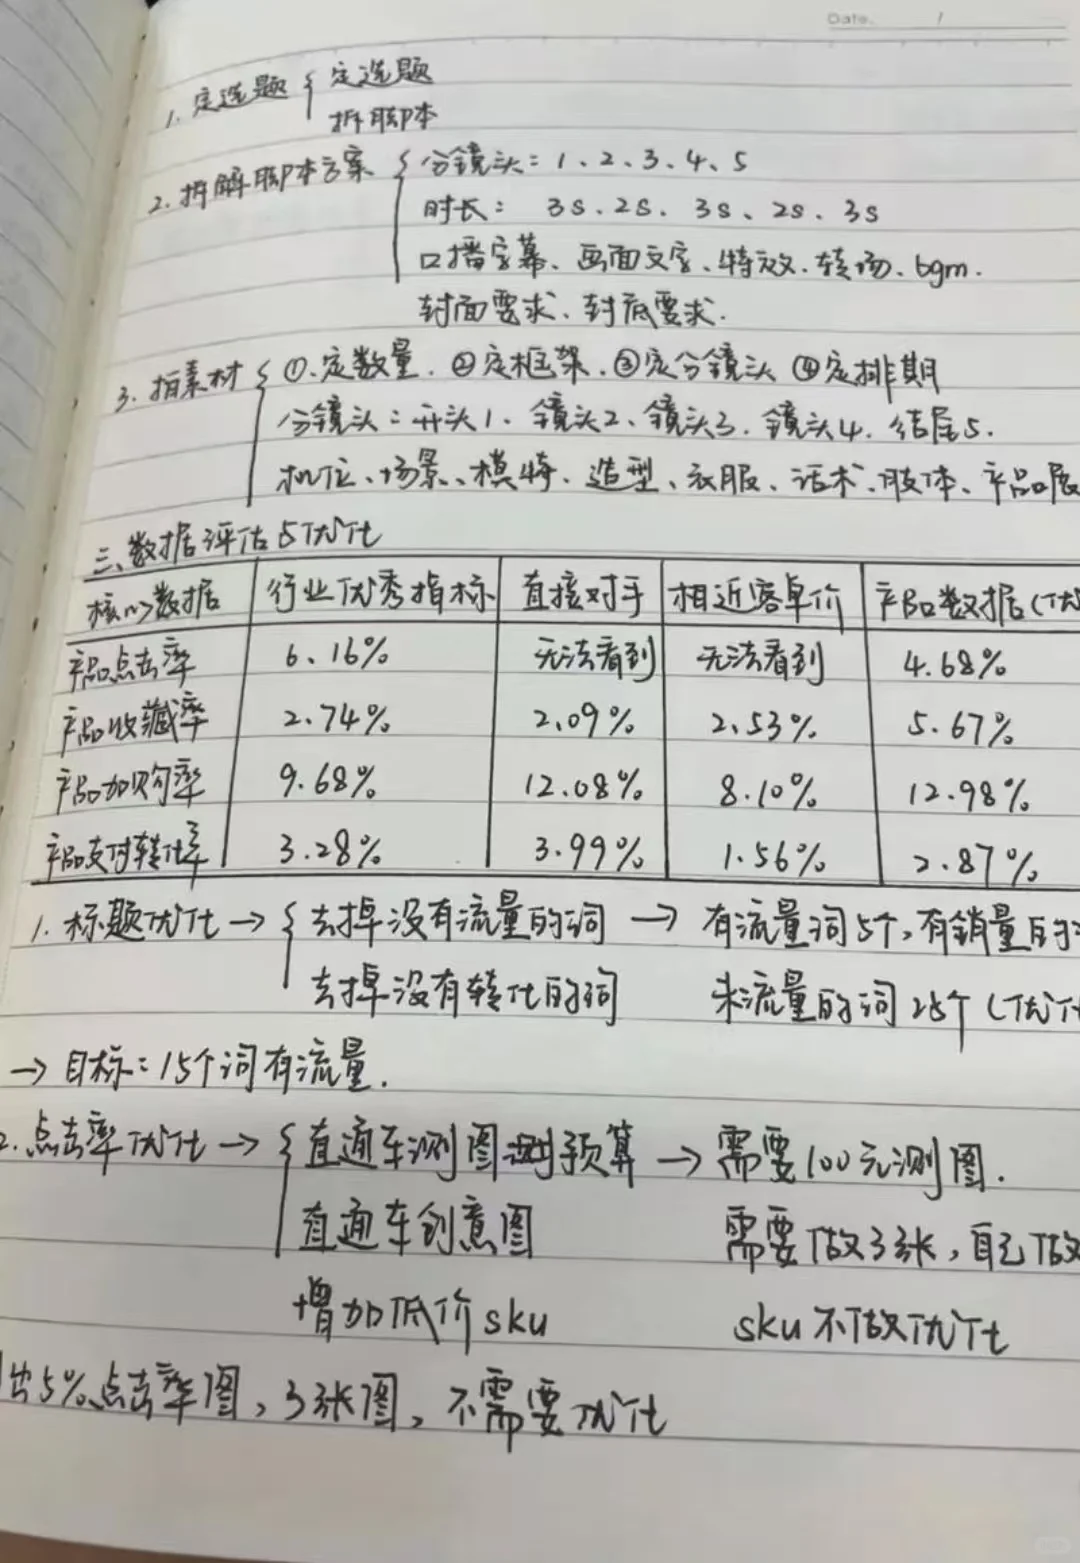 Date. /
1. 定选题 { 定选题
拆脚本
2. 拆解脚本方案 { 分镜头: 1、2、3、4、5
时长: 3s、2s、3s、2s、3s
口播字幕、画面文字、特效、转场、bgm.
封面要求、封底要求.
3. 拍素材 { ①定数量. ②定框架. ③定分镜头 ④定排期
分镜头: 开头1、镜头2、镜头3、镜头4、结尾5.
机位、场景、模特、造型、衣服、话术、肢体、产品展
三、数据评估与优化
核心数据 行业优秀指标 直接对手 相近客单价 产品数据(优
产品点击率 6.16% 无法看到 无法看到 4.68%
产品收藏率 2.74% 2.09% 2.53% 5.67%
产品加购率 9.68% 12.08% 8.10% 12.98%
产品支付转化率 3.28% 3.99% 1.56% 2.87%
1. 标题优化 → { 去掉没有流量的词 → 有流量词5个,有销量的
去掉没有转化的词 未流量的词25个(优化
→ 目标: 15个词有流量.
2. 点击率优化 → { 直通车测图 预算 → 需要100元测图.
直通车创意图 需要做3张,自己做
增加低价sku sku不做优化
出5%点击率图,3张图,不需要优化